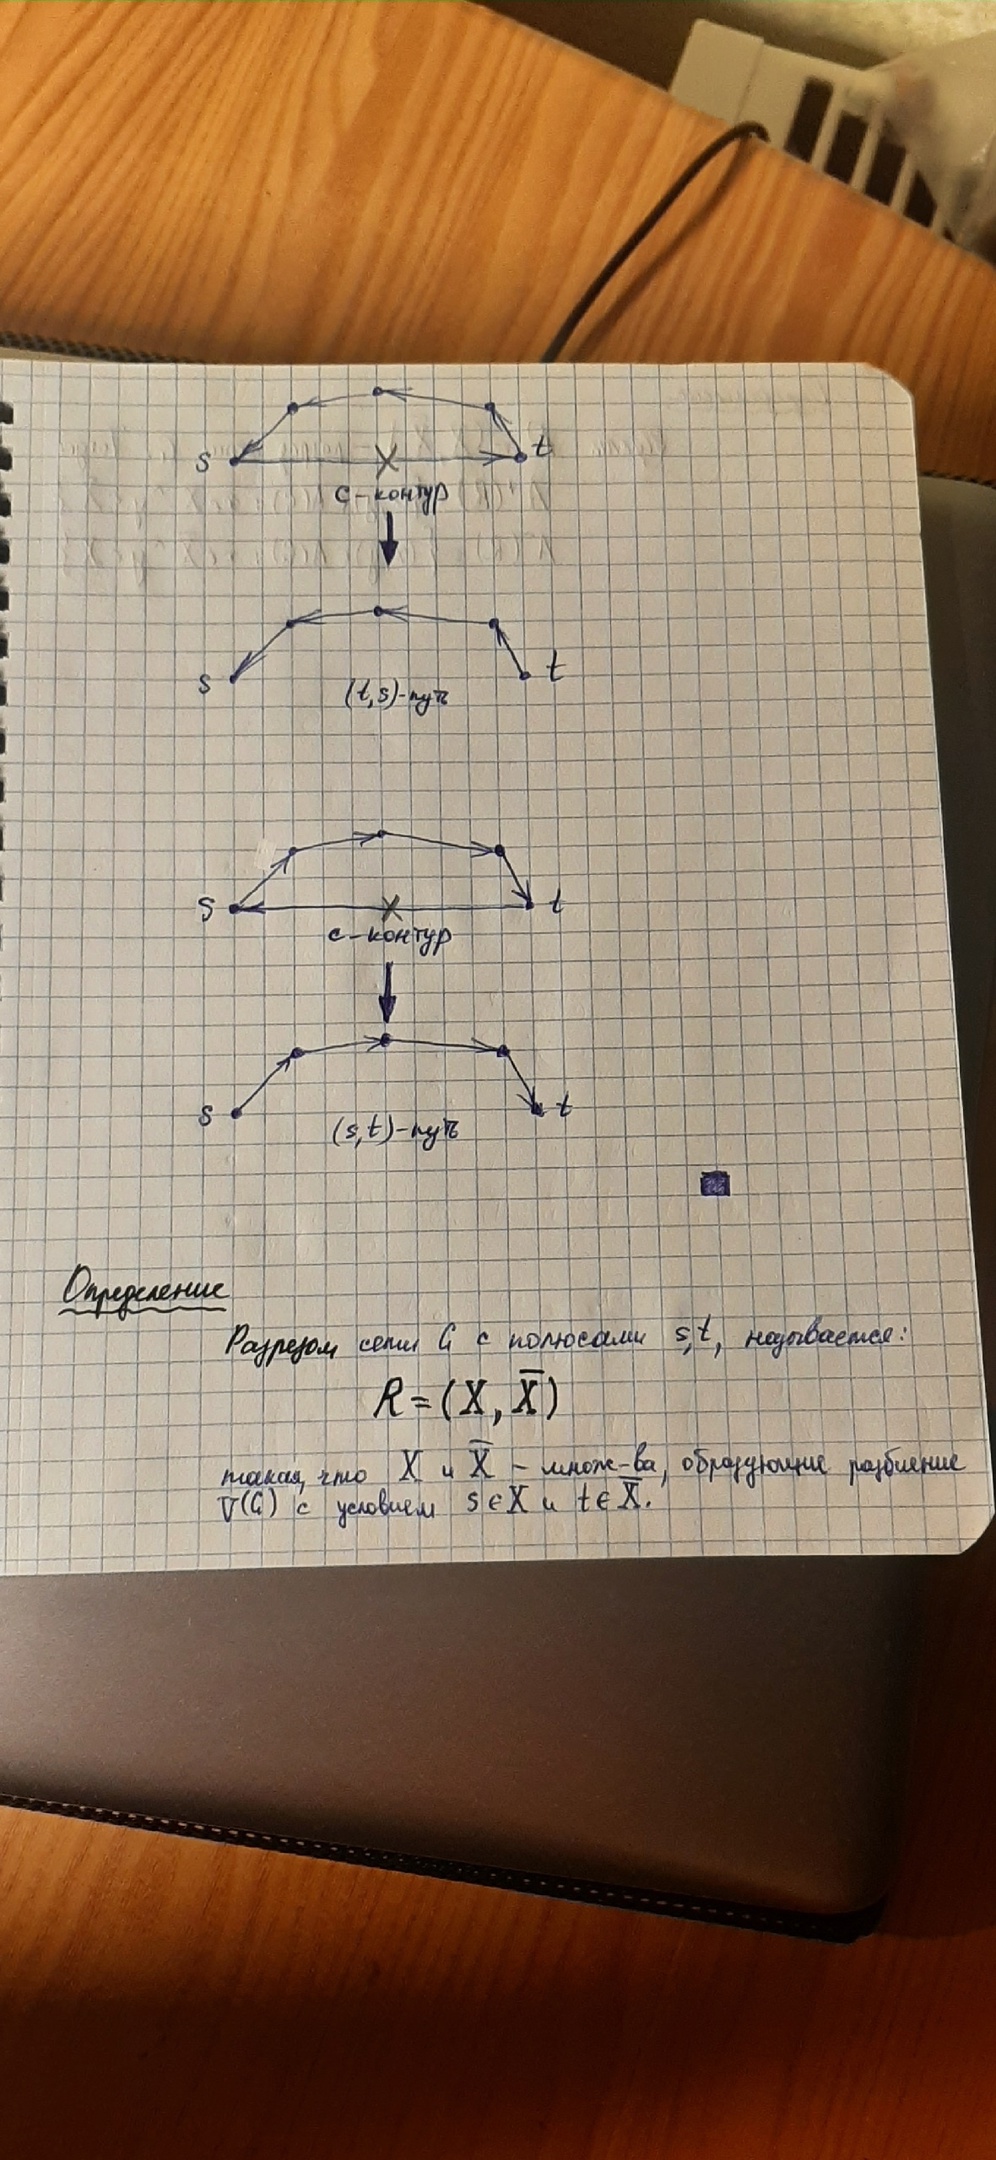 s t
c-контур
s t
(t,s)-путь
s t
c-контур
s t
(s,t)-путь
Определение
Разрезом сети G с полюсами s,t, называется:
R=(X, X̅)
такая, что X и X̅ - множ-ва, образующие разбиение
V(G) с условием s∈X и t∈X̅.